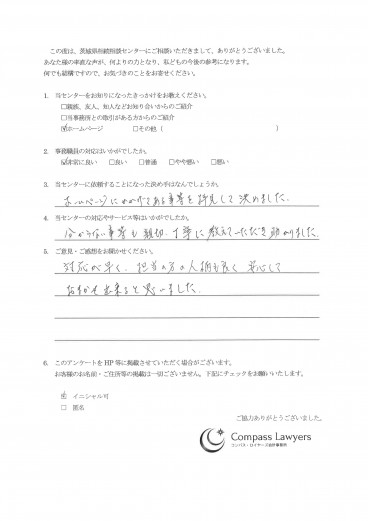 この度は、茨城県相続相談センターにご相談いただきまして、ありがとうございました。
あなた様の率直な声が、何よりの力となり、私どもの今後の参考になります。
何でも結構ですので、お気づきのことをお寄せください。
1. 当センターをお知りになったきっかけをお教えください。
□親族、友人、知人などお知り合いからのご紹介
□当事務所との取引がある方からのご紹介
☑ホームページ □その他（ ）
2. 事務職員の対応はいかがでしたか。
☑非常に良い □良い □普通 □やや悪い □悪い
3. 当センターに依頼することになった決め手はなんでしょうか。
ホームページにのっている事等を拝見して決めました。
4. 当センターの対応やサービス等はいかがでしたか。
分からない事等も親切、丁寧に教えていただき助かりました。
5. ご意見・ご感想をお聞かせください。
対応が早く、担当の方の人柄も良く安心して
おまかせ出来ると思いました。
6. このアンケートをHP等に掲載させていただく場合がございます。
お客様のお名前・ご住所等の掲載は一切ございません。下記にチェックをお願いいたします。
☑ イニシャル可
□ 匿名
ご協力ありがとうございました。
Compass Lawyers
コンパス・ロイヤーズ会計事務所